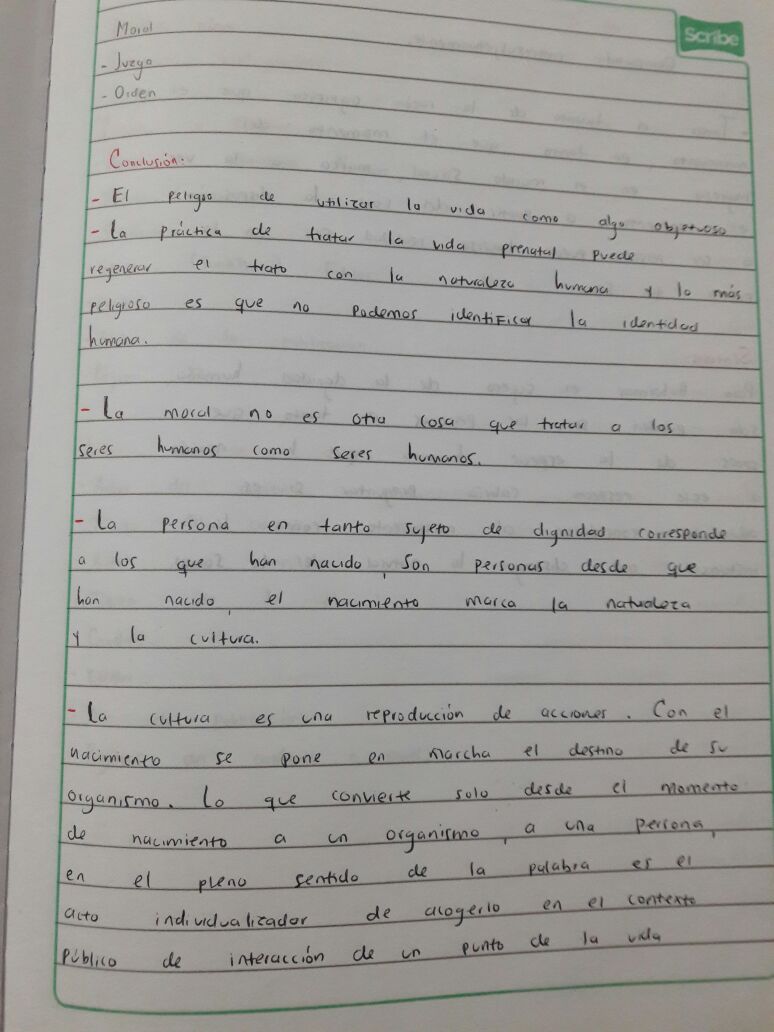 Scribe
Moral
- Juego
- Orden
Conclusión:
- El peligro de utilizar la vida como algo objetuoso
- La práctica de tratar la vida prenatal puede
regenerar el trato con la naturaleza humana y lo más
peligroso es que no podemos identificar la identidad
humana.
- La moral no es otra cosa que tratar a los
seres humanos como seres humanos.
- La persona en tanto sujeto de dignidad corresponde
a los que han nacido, son personas desde que
han nacido, el nacimiento marca la naturaleza
y la cultura.
- La cultura es una reproducción de acciones. Con el
nacimiento se pone en marcha el destino de su
organismo. Lo que convierte solo desde el momento
de nacimiento a un organismo, a una persona,
en el pleno sentido de la palabra es el
acto individualizador de acogerlo en el contexto
público de interacción de un punto de la vida